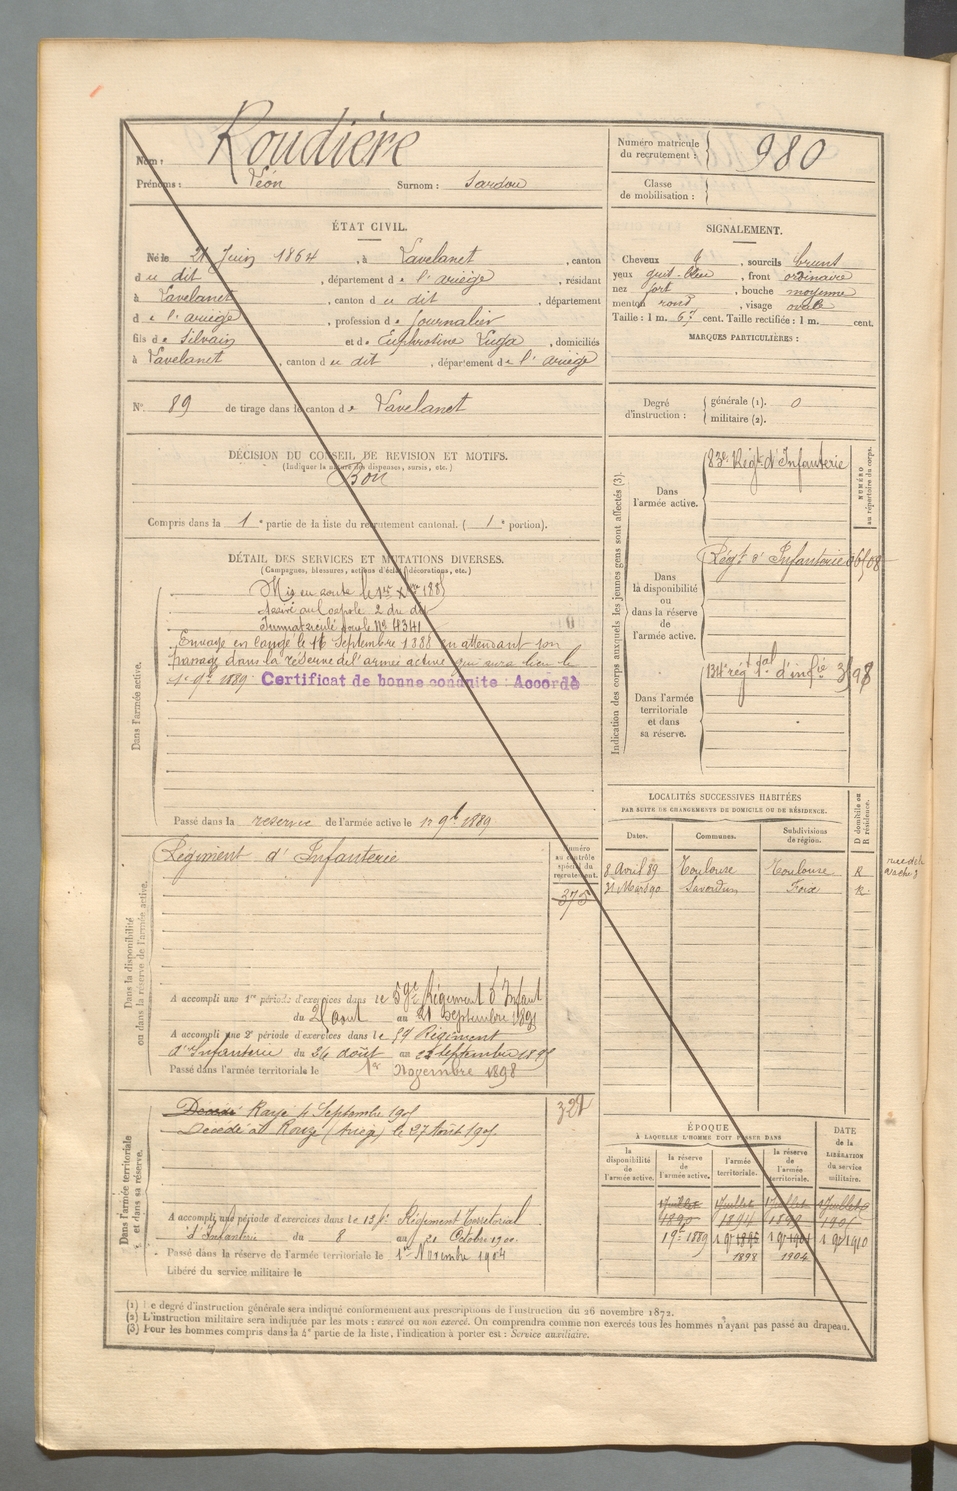 Nom : Roudière
Prénoms : Léon Surnom : Sardou
Numéro matricule du recrutement : 980
Classe de mobilisation :
ÉTAT CIVIL.
Né le 21 Juin 1864, à Lavelanet, canton
du dit, département de l'ariège, résidant
à Lavelanet, canton du dit, département
de l'ariège, profession de Journalier
fils de Silvain et de Euphrosine, domiciliés
à Lavelanet, canton du dit, département de l'ariège
N° 89 de tirage dans le canton de Lavelanet
SIGNALEMENT.
Cheveux, sourcils bruns
yeux gris-bleu, front ordinaire
nez fort, bouche moyenne
menton rond, visage ovale
Taille : 1 m. 67 cent. Taille rectifiée : 1 m. cent.
MARQUES PARTICULIÈRES :
Degré d'instruction : générale (1). 0
militaire (2).
DÉCISION DU CONSEIL DE REVISION ET MOTIFS.
(Indiquer la nature des dispenses, sursis, etc.)
Bon
Compris dans la 1e partie de la liste du recrutement cantonal. (1e portion).
DÉTAIL DES SERVICES ET MUTATIONS DIVERSES.
(Campagnes, blessures, actions d'éclat, décorations, etc.)
Dans l'armée active.
Mis en route le 1er Xbre 1885
Arrivé au Corps le 2 du dit
Immatriculé sous le No 4341
Envoyé en congé le 16 Septembre 1888 en attendant son
passage dans la réserve de l'armée active qui aura lieu le
1er 9bre 1889 Certificat de bonne conduite : Accordé
Passé dans la reserve de l'armée active le 1er 9bre 1889
Indication des corps auxquels les jeunes gens sont affectés (3).
NUMÉRO au répertoire du corps.
Dans l'armée active.
83e Régt d'Infanterie
Dans la disponibilité ou dans la réserve de l'armée active.
Régt d'Infanterie
Dans l'armée territoriale et dans sa réserve.
134e régt tal d'infie
LOCALITÉS SUCCESSIVES HABITÉES
PAR SUITE DE CHANGEMENTS DE DOMICILE OU DE RÉSIDENCE.
Dates. Communes. Subdivisions de région. D domicile ou R résidence.
8 Avril 89 Toulouse Toulouse R
31 Mars 90 Saverdun Foix R.
Dans la disponibilité ou dans la réserve de l'armée active.
Régiment d'Infanterie
Numéro au contrôle spécial du recrutement.
375
A accompli une 1re période d'exercices dans le 59e Régiment d'Infant
du 25 aout au 21 Septembre 1891
A accompli une 2e période d'exercices dans le 59 Régiment
d'Infanterie du 26 août au septembre 1895
Passé dans l'armée territoriale le 1er Novembre 1898
Dans l'armée territoriale et dans sa réserve.
Décédé Rayé 4 Septembre 1905
Décédé à Rouze (Ariège) le 27 Août 1905.
321
A accompli une période d'exercices dans le 134e Régiment Territorial
d'Infanterie du 8 au 21 Octobre 1900.
Passé dans la réserve de l'armée territoriale le 1er Novembre 1904
Libéré du service militaire le
ÉPOQUE
À LAQUELLE L'HOMME DOIT PASSER DANS
DATE de la LIBÉRATION du service militaire.
la disponibilité de l'armée active. la réserve de l'armée active. l'armée territoriale. la réserve de l'armée territoriale.
1 Juillet 1 Juillet 1 Juillet 1 Juillet
1890 1894 1899 1905
1 9bre 1889 1 9bre 1895 1 9bre 1901 1 9bre 1910
1898 1904
(1) Le degré d'instruction générale sera indiqué conformément aux prescriptions de l'instruction du 26 novembre 1872.
(2) L'instruction militaire sera indiquée par les mots : exercé ou non exercé. On comprendra comme non exercés tous les hommes n'ayant pas passé au drapeau.
(3) Pour les hommes compris dans la 4e partie de la liste, l'indication à porter est : Service auxiliaire.